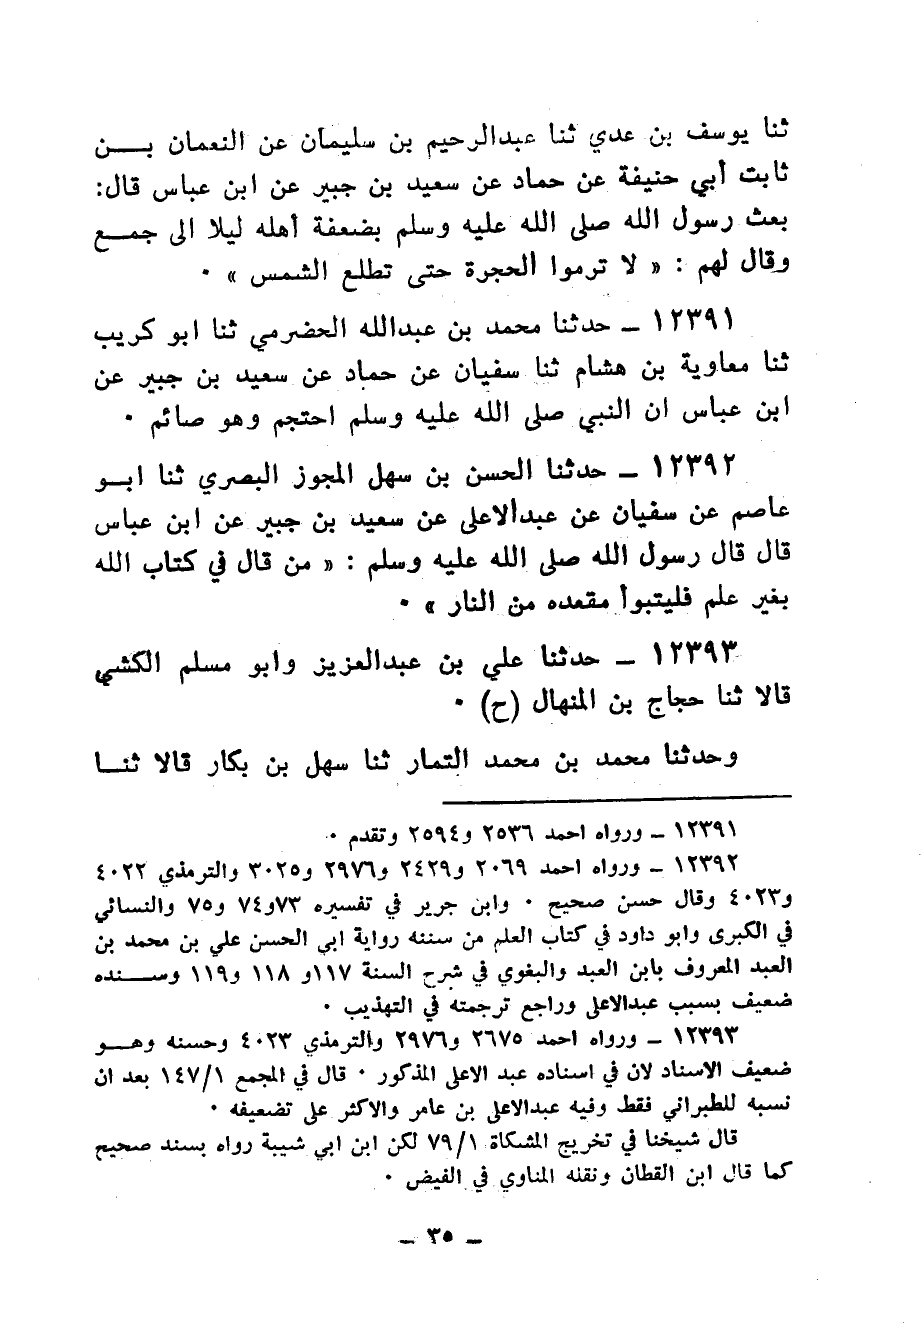 ثنا يوسف بن عدي ثنا عبدالرحيم بن سليمان عن النعمان بـــن
ثابت أبي حنيفة عن حماد عن سعيد بن جبير عن ابن عباس قال:
بعث رسول الله صلى الله عليه وسلم بضعفة أهله ليلا الى جمـــع
وقال لهم : « لا ترموا الجمرة حتى تطلع الشمس » ٠
١٢٣٩١ ــ حدثنا محمد بن عبدالله الحضرمي ثنا ابو كريب
ثنا معاوية بن هشام ثنا سفيان عن حماد عن سعيد بن جبير عن
ابن عباس ان النبي صلى الله عليه وسلم احتجم وهو صائم ٠
١٢٣٩٢ ــ حدثنا الحسن بن سهل المجوز البصري ثنا ابـــو
عاصم عن سفيان عن عبدالاعلى عن سعيد بن جبير عن ابن عباس
قال قال رسول الله صلى الله عليه وسلم : « من قال في كتاب الله
بغير علم فليتبوأ مقعده من النار » ٠
١٢٣٩٣ ــ حدثنا علي بن عبدالعزيز وابو مسلم الكشي
قالا ثنا حجاج بن المنهال (ح) ٠
وحدثنا محمد بن محمد التمار ثنا سهل بن بكار قالا ثنـــا
١٢٣٩١ ــ ورواه احمد ٢٥٣٦ و٢٥٩٤ وتقدم ٠
١٢٣٩٢ ــ ورواه احمد ٢٠٦٩ و٢٤٢٩ و٢٩٧٦ و٣٠٢٥ والترمذي ٤٠٢٢
و٤٠٢٣ وقال حسن صحيح ٠ وابن جرير في تفسيره ٧٣و٧٤ و٧٥ والنسائي
في الكبرى وابو داود في كتاب العلم من سننه رواية ابي الحسن علي بن محمد بن
العبد المعروف بابن العبد والبغوي في شرح السنة ١١٧و ١١٨ و١١٩ وســـنده
ضعيف بسبب عبدالاعلى وراجع ترجمته في التهذيب ٠
١٢٣٩٣ ــ ورواه احمد ٢٦٧٥ و٢٩٧٦ والترمذي ٤٠٢٣ وحسنه وهـــو
ضعيف الاسناد لان في اسناده عبد الاعلى المذكور ٠ قال في المجمع ١٤٧/١ بعد ان
نسبه للطبراني فقط وفيه عبدالاعلى بن عامر والاكثر على تضعيفه ٠
قال شيخنا في تخريج المشكاة ٧٩/١ لكن ابن ابي شيبة رواه بسند صحيح
كما قال ابن القطان ونقله المناوي في الفيض ٠
ــ ٣٥ ــ